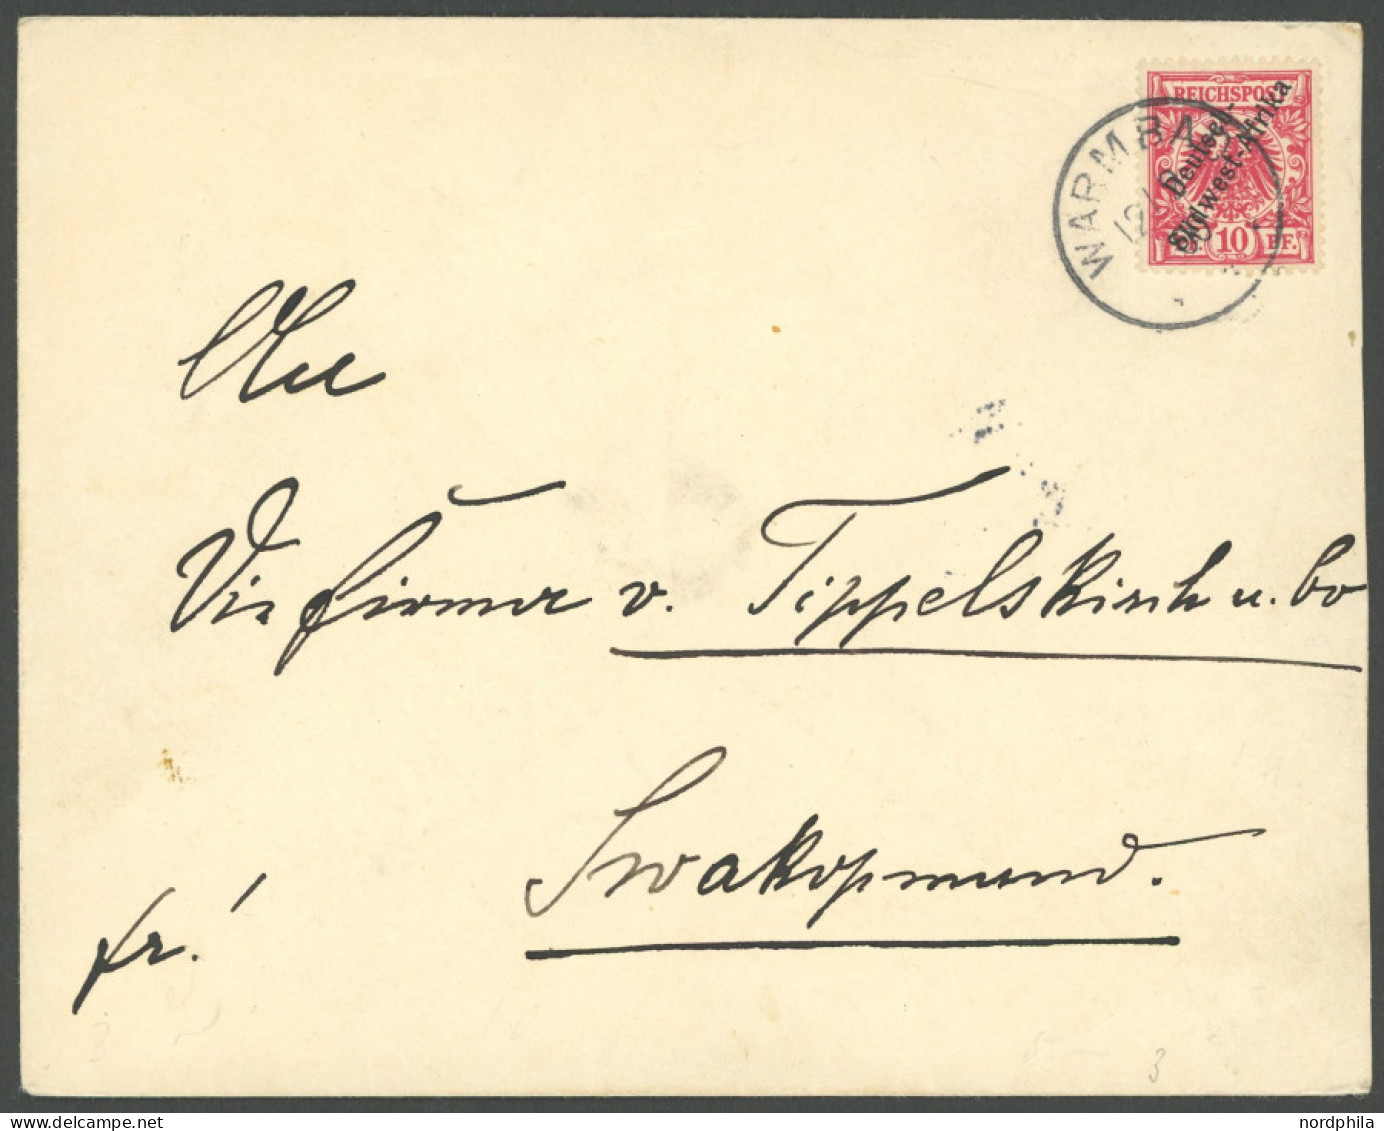 REICHSPOST
Deutsch-
Südwest-Afrika
10 PF.
WARMBAD
An
Die Firma v. Tippelskirch u. Co
Swakopmund.
fr.!
3
nordphila